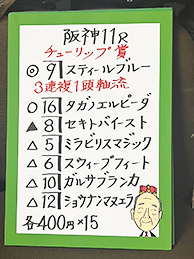 阪神11R
チューリップ賞
◎9 スティールブルー
3連複1頭軸流
○16 タガノエルピーダ
▲8 セキトバイースト
△5 ミラビリスマジック
△6 スウィープフィート
△10 ガルサブランカ
△12 ショウナンマヌエラ
各400円×15